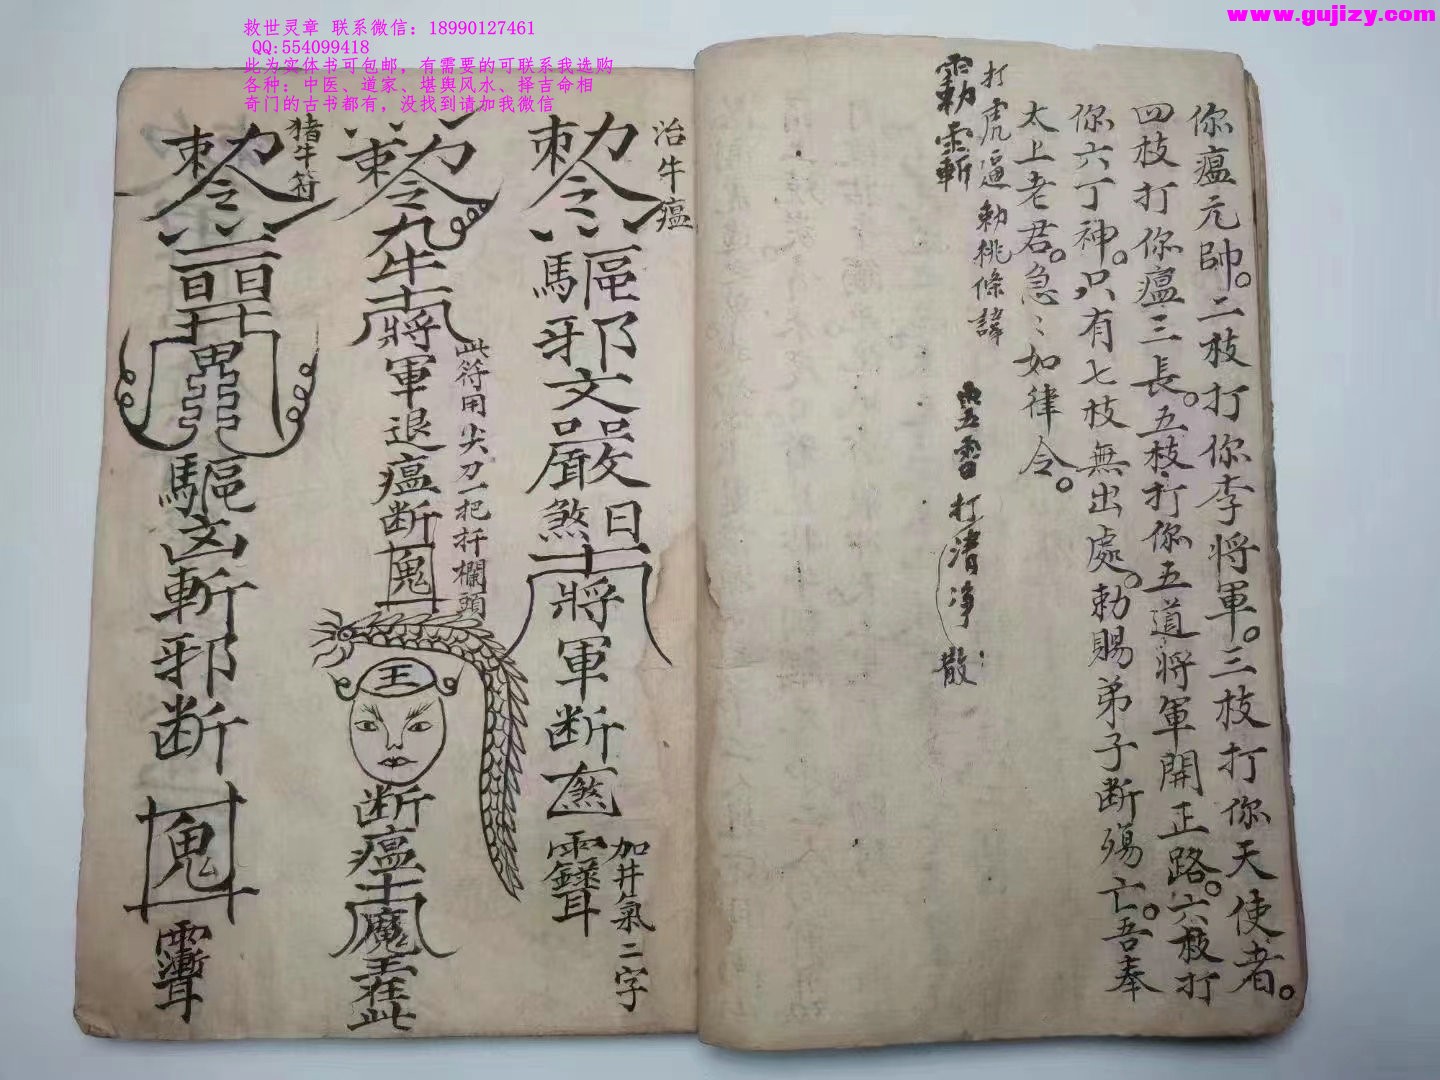 救世灵章 联系微信：18990127461
QQ:554099418
此为实体书可包邮，有需要的可联系我选购
各种：中医、道家、堪舆风水、择吉命相
奇门的古书都有，没找到请加我微信
www.gujizy.com
你瘟元帥。二枝打你李将軍。三枝打你天使者。
四枝打你瘟三長。五枝打你五道将軍開正路。六枝打
你六丁神。只有七枝無出處。勅賜弟子断殇亡。吾奉
太上老君。急〻如律令。
打虎逼 勅桃條諱
打清净 散
治牛瘟
勅令 驅邪文嚴煞日 將軍断煞
加井氣二字
此符用尖刀一把扦欄頭
勅令九牛 將軍退瘟断鬼
王
断瘟 魔王在此
猪牛符
勅令 驅凶斬邪断鬼